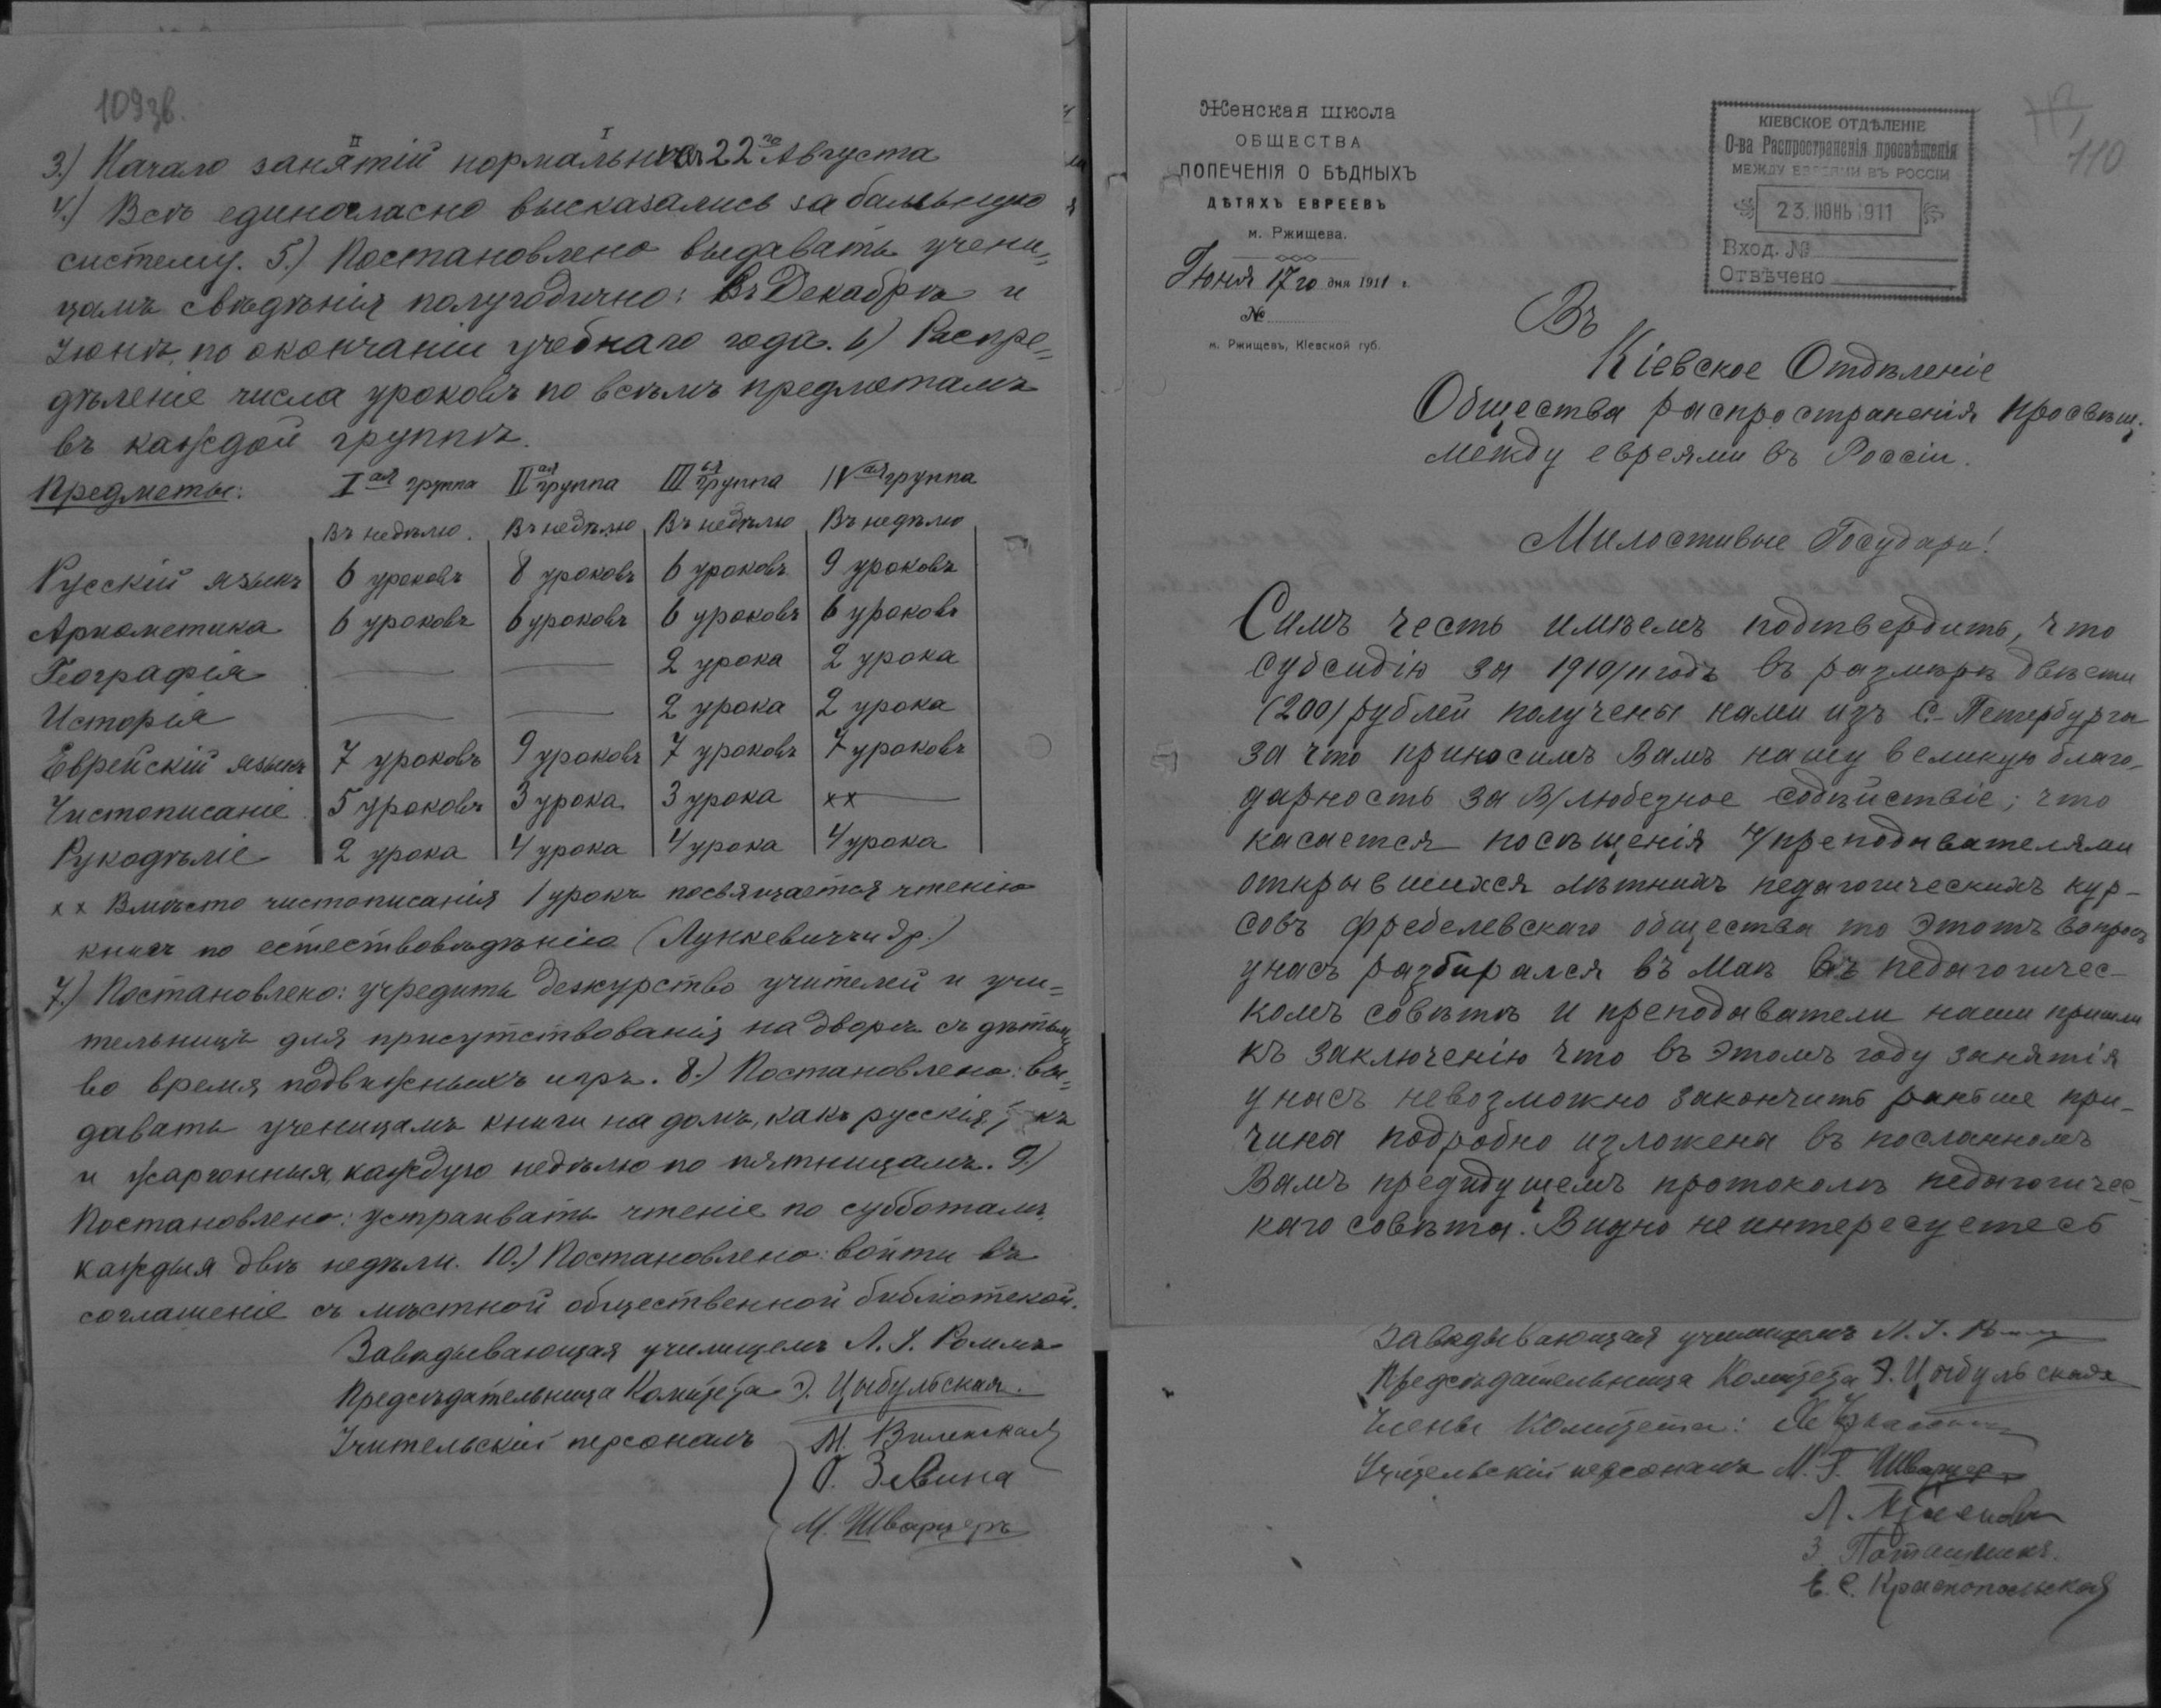 109зв.
3.) Начало занятій нормально 22го Августа
4.) Всѣ единогласно высказались за балльную
систему. 5.) Постановлено выдавать учени=
цамъ свѣдѣнія полугодично: въ Декабрѣ и
Іюнѣ, по окончаніи учебнаго года. 6) Распре=
дѣленіе числа уроковъ по всѣмъ предметамъ
въ каждой группѣ.
Предметы: Iая группа IIая группа IIIья группа IVая группа
Въ недѣлю. Въ недѣлю Въ недѣлю Въ недѣлю
Русскій языкъ 6 уроковъ 8 уроковъ 6 уроковъ 9 уроковъ
Ариѳметика 6 уроковъ 6 уроковъ 6 уроковъ 6 уроковъ
Географія — — 2 урока 2 урока
Исторія — — 2 урока 2 урока
Еврейскій языкъ 7 уроковъ 9 уроковъ 7 уроковъ 7 уроковъ
Чистописаніе 5 уроковъ 3 урока 3 урока xx —
Рукодѣліе 2 урока 4 урока 4 урока 4 урока
x x Вмѣсто чистописанія 1 урокъ посвящается чтенію
книгъ по естествовѣдѣнію (Лункевичъ и др.)
7.) Постановлено: учредить дежурство учителей и учи=
тельницъ для присутствованія на дворѣ съ дѣтьми
во время подвижныхъ игръ. 8.) Постановлено: вы=
давать ученицамъ книги на домъ, какъ русскія,
и жаргонныя, каждую недѣлю по пятницамъ. 9.)
Постановлено: устраивать чтеніе по субботамъ,
каждыя двѣ недѣли. 10.) Постановлено: войти въ
соглашеніе съ мѣстной общественной библіотекой.
Завѣдывающая училищемъ Л. І. Роммъ
Предсѣдательница Комитета Э. Цыбульская.
Учительскій персоналъ М. Виленская
О. Зевина
М. Шварцеръ
110
Женская школа
ОБЩЕСТВА
ПОПЕЧЕНІЯ О БѢДНЫХЪ
ДѢТЯХЪ ЕВРЕЕВЪ
м. Ржищева.
Іюня 17го дня 1911 г.
№
м. Ржищевъ, Кіевской губ.
КІЕВСКОЕ ОТДѢЛЕНІЕ
О-ва Распространенія просвѣщенія
МЕЖДУ ЕВРЕЯМИ ВЪ РОССІИ
23. ІЮНЬ 1911
Вход. №
Отвѣчено
Въ
Кіевское Отдѣленіе
Общества распространенія просвѣщ.
между евреями въ Россіи.
Милостивые Государи!
Симъ честь имѣемъ подтвердить, что
субсидію за 1910/11 годъ въ размѣрѣ двѣсти
(200) рублей получены нами изъ С.-Петербурга
за что приносимъ Вамъ нашу великую благо-
дарность за В/любезное содѣйствіе; что
касается посѣщенія н/преподавателями
открывшихся лѣтнихъ педагогическихъ кур-
совъ фребелевскаго общества то этотъ вопросъ
у насъ разбирался въ Маѣ въ педагогичес-
комъ совѣтѣ и преподаватели наши пришли
къ заключенію что въ этомъ году занятія
у насъ невозможно закончить раньше при-
чина подробно изложена въ посланномъ
Вамъ предидущемъ протоколѣ педагогичес-
каго совѣта. Видно не интересуетесь
Завѣдывающая училищемъ Л. І.
Предсѣдательница Комитета Э. Цыбульская
Члены Комитета:
Учительскій персоналъ М. Г. Шварцеръ
Л.
З. Поташникъ.
Е. С. Краснопольская